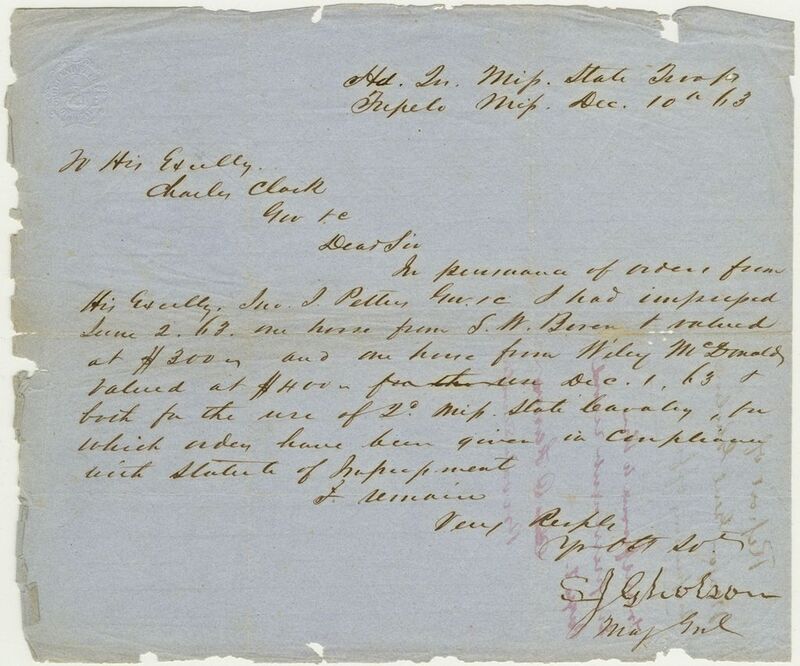 Hd. Qr. Miss. State Troops
Tupelo Miss. Dec. 10th 63
To His Excelly.
Charles Clark
Gov &c
Dear Sir
In pursuance of orders from
His Excelly. Jno. J. Pettus Gov. &c I had impressed
June 2. 63. one horse from S. W. Boren & valued
at $300 00 and one horse from Wiley McDonald
valued at $400 00 for the use Dec. 1, 63 &
both for the use of 2d Miss. State Cavalry, for
which orders have been given in compliance
with Statute of Impressment
I remain
Very Respfly
Yr Obt Svt
S J Gholson
Maj Genl